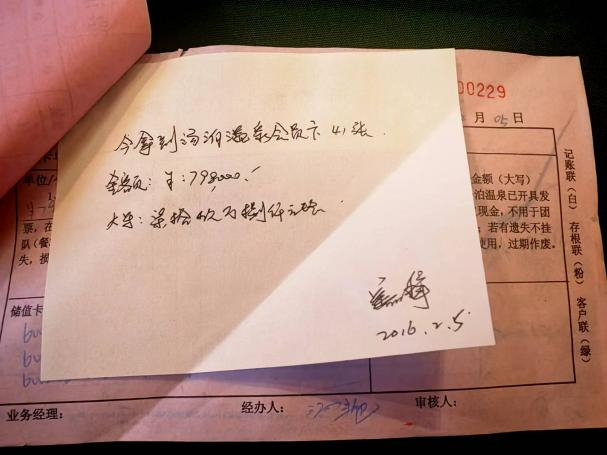 00229
月 05 日
今拿到汤泊温泉会员卡 41 张.
金额: ¥:798,000.-
大写: 柒拾玖万捌仟元整
2016.2.5
金额（大写）
泊温泉已开具发
现金，不用于团
；若有遗失不挂
使用，过期作废。
单位/
票，在
队（餐
失，损
储值卡
记账联（白） 存根联（粉） 客户联（绿）
业务经理： 经办人： 审核人：